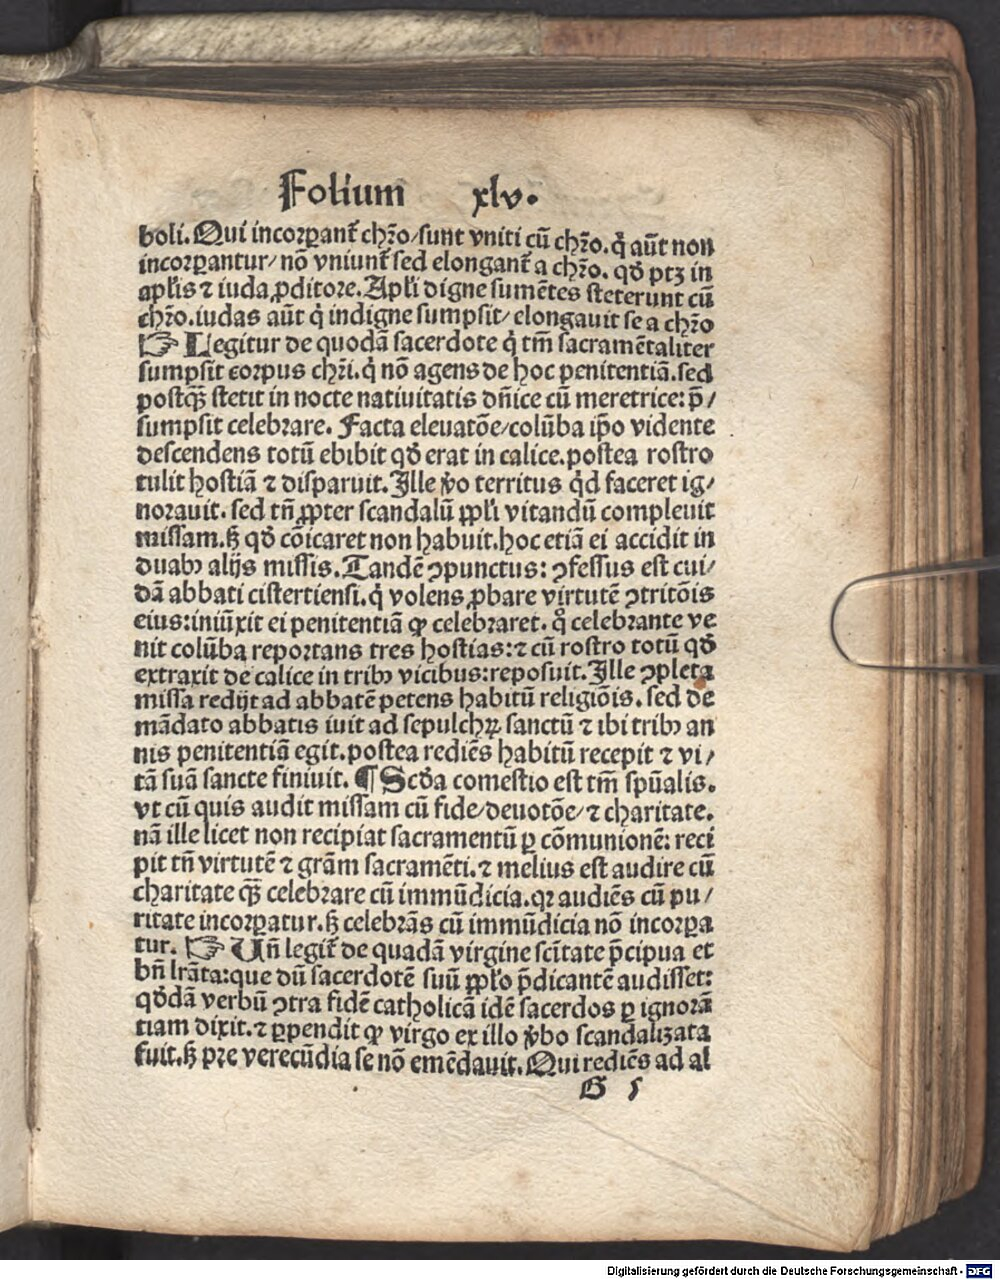 Folium xlv.
boli. Qui incorpant̃ chr̃o/sunt vniti cũ chr̃o. q̇ aũt non
incorpantur/ nõ vniunt̃ sed elongant̃ a chr̃o. qđ ptꝫ in
apl̃is ⁊ iuda ꝓditore. Apl̃i digne sumẽtes steterunt cũ
chr̃o. iudas aũt q̇ indigne sumpsit/ elongauit se a chr̃o
☞ Legitur de quodã sacerdote q̇ tm̃ sacramẽtaliter
sumpsit corpus chr̃i. q̇ nõ agens de hoc penitentiã. sed
postq̃ꝫ stetit in nocte natiuitatis dñice cũ meretrice: p̃/
sumpsit celebrare. Facta eleuatõe/ colũba ip̃o vidente
descendens totũ ebibit qđ erat in calice. postea rostro
tulit hostiã ⁊ disparuit. Ille ṽo territus qd̓ faceret ig/
norauit. sed tñ ꝓpter scandalũ ppl̃i vitandũ compleuit
missam. sꝫ qđ cõicaret non habuit. hoc etiã ei accidit in
duabꝰ alijs missis. Tandẽ ꝯpunctus: ꝯfessus est cui/
dã abbati cistertiensi. q̇ volens ꝓbare virtutẽ ꝯtritõis
eius: iniũxit ei penitentiã ꝙ celebraret. q̊ celebrante ve
nit colũba reportans tres hostias: ⁊ cũ rostro totũ qđ
extraxit de calice in tribꝰ vicibus: reposuit. Ille ꝯpleta
missa redijt ad abbatẽ petens habitũ religiõis. sed de
mãdato abbatis iuit ad sepulchꝝ sanctũ ⁊ ibi tribꝰ an
nis penitentiã egit. postea rediẽs habitũ recepit ⁊ vi/
tã suã sancte finiuit. ¶ Scđa comestio est tm̃ spũalis.
vt cũ quis audit missam cũ fide/deuotõe/ ⁊ charitate.
nã ille licet non recipiat sacramentũ ꝑ cõmunionẽ: reci
pit tñ virtutẽ ⁊ grãm sacramẽti. ⁊ melius est audire cũ
charitate q̃ꝫ celebrare cũ immũdicia. qꝛ audiẽs cũ pu/
ritate incorpatur. sꝫ celebrãs cũ immũdicia nõ incorpa
tur. ☞ Vñ legit̃ de quadã virgine scĩtate p̃cipua et
bñ lr̃ata: que dũ sacerdotẽ suũ ppl̃o p̃dicantẽ audisset:
qđdã verbũ ꝯtra fidẽ catholicã idẽ sacerdos ꝑ ignorã
tiam dixit. ⁊ ꝑpendit ꝙ virgo ex illo ṽbo scandalizata
fuit. sꝫ pre verecũdia se nõ emẽdauit. Qui rediẽs ad al
G 5
Digitalisierung gefördert durch die Deutsche Forschungsgemeinschaft - DFG